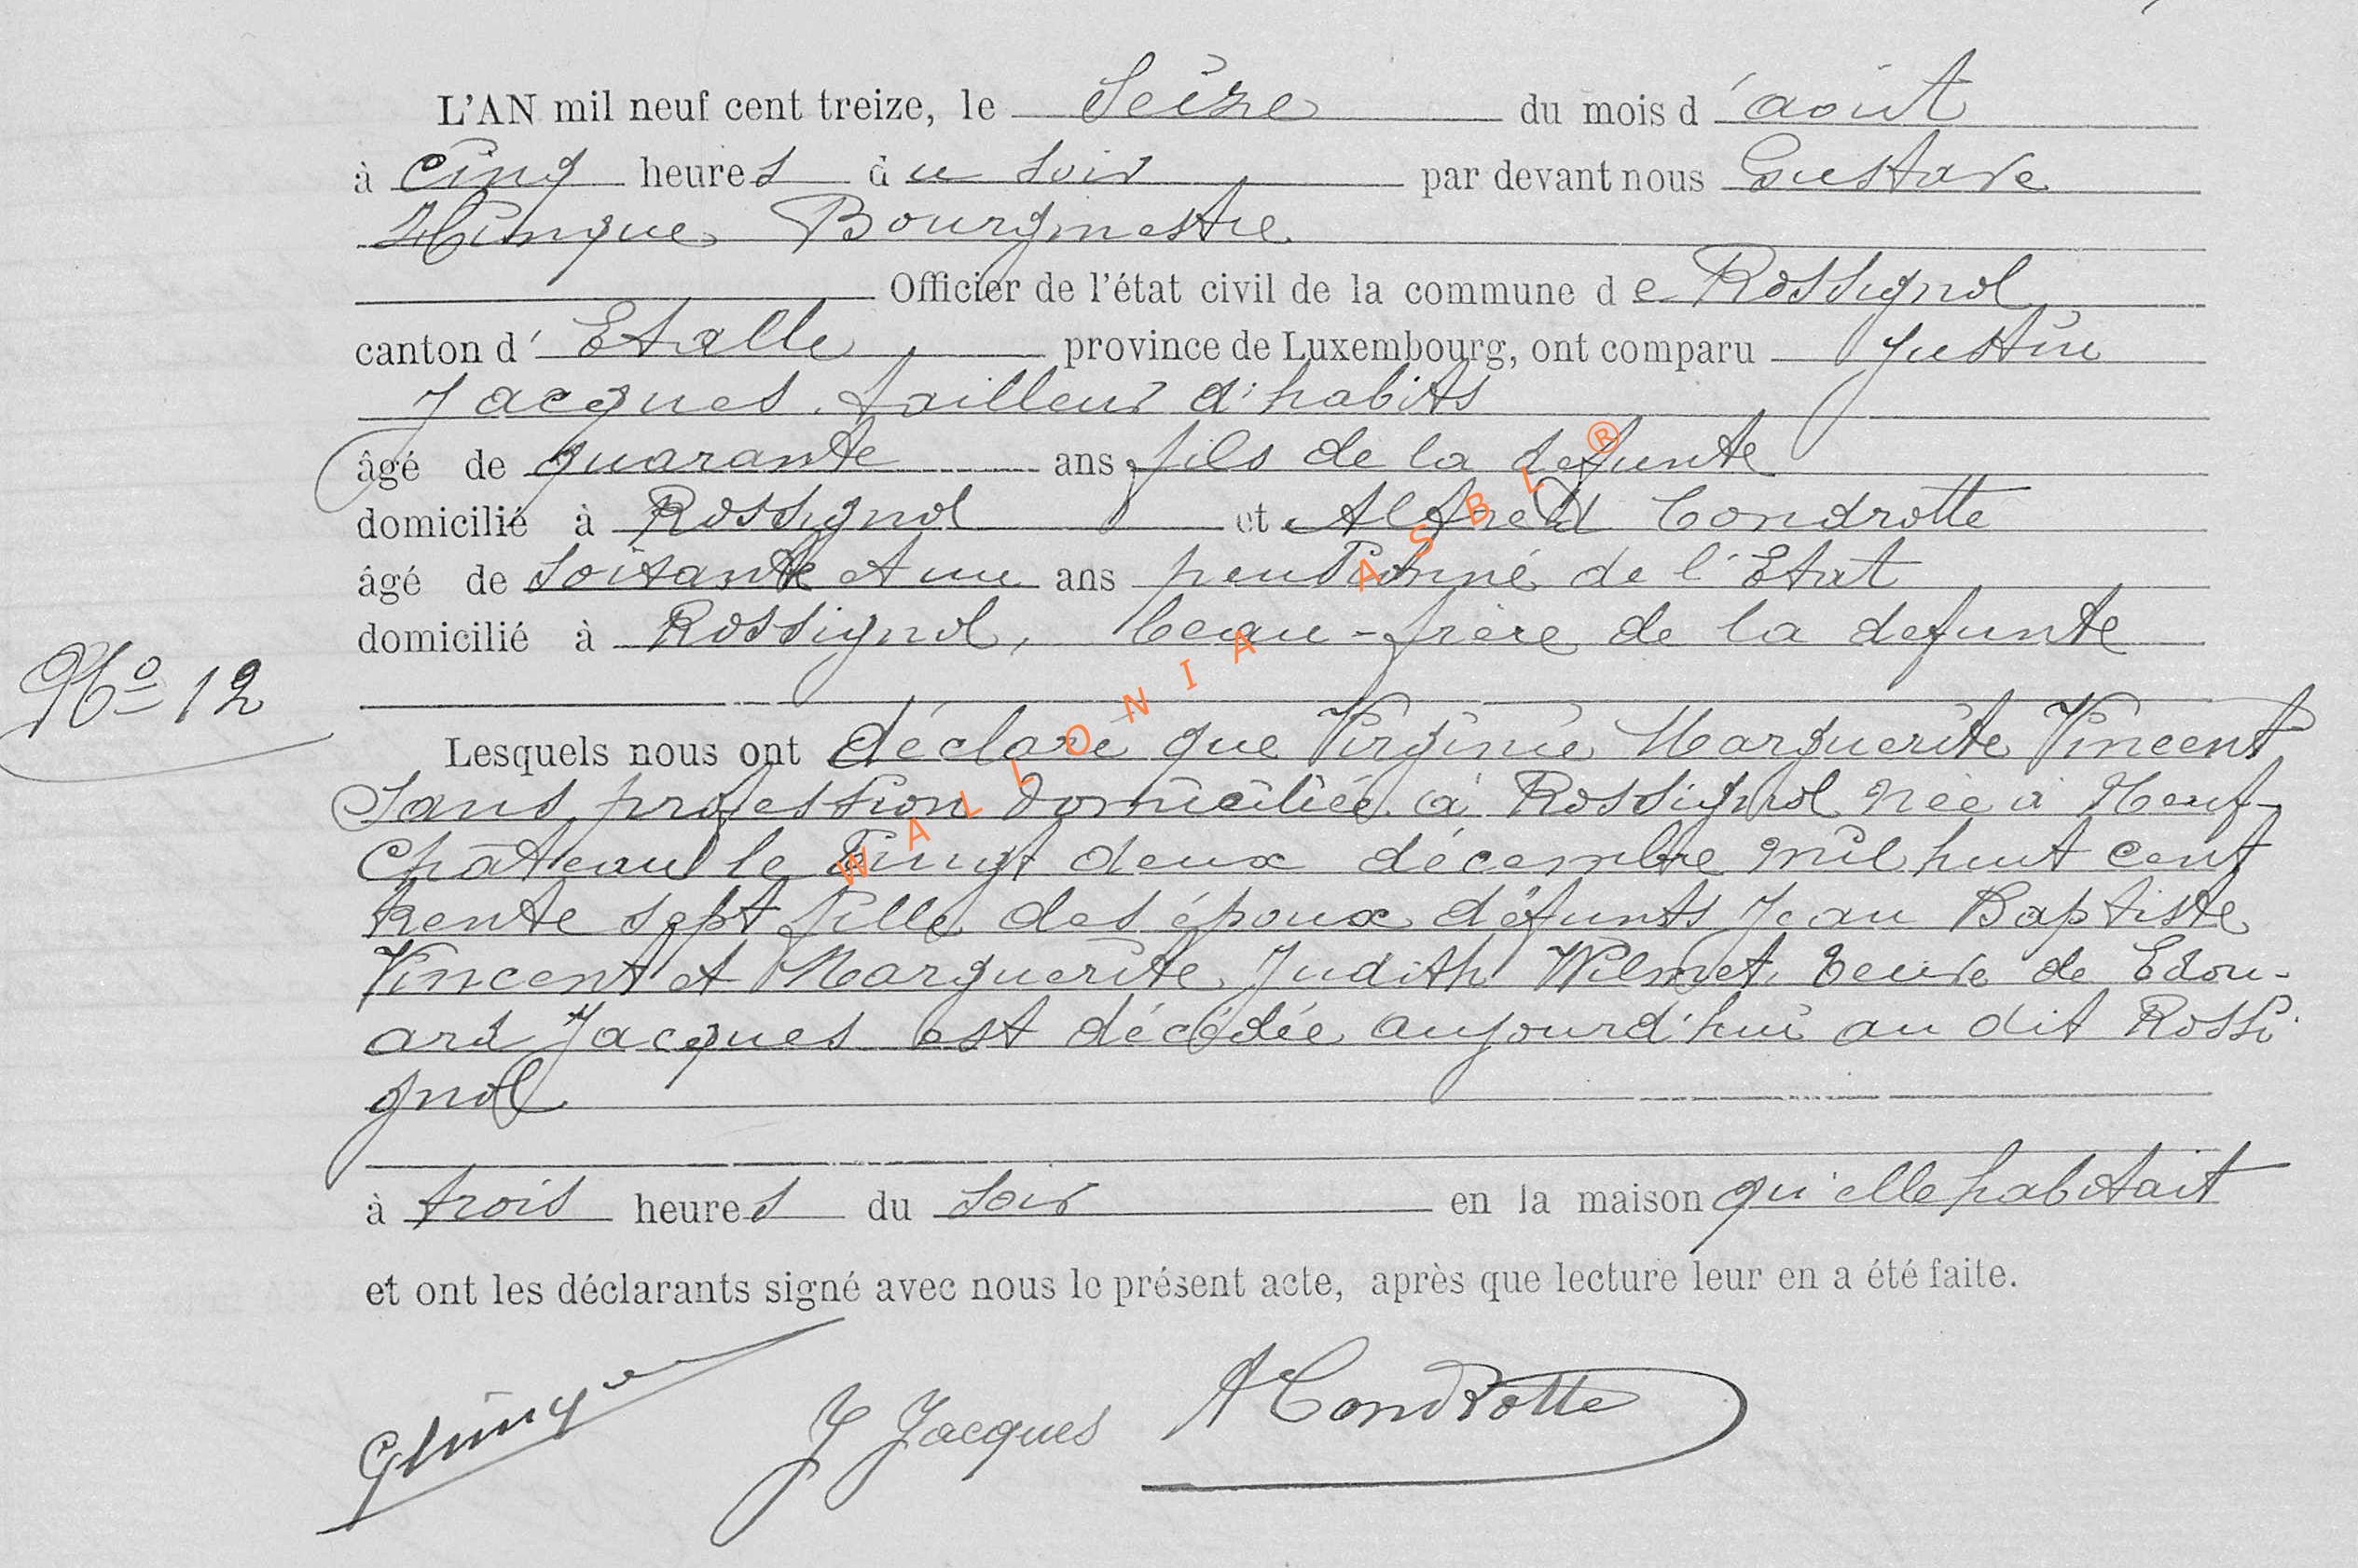 L'AN mil neuf cent treize, le Seize du mois d'août
à cinq heures du soir par devant nous Gustave
Hurieque Bourgmestre
Officier de l'état civil de la commune de Rossignol
canton d'Etalle province de Luxembourg, ont comparu Justin
Jacques, tailleur d'habits
âgé de quarante ans, fils de la defunte
domicilié à Rossignol et Alfred Condrotte
âgé de soixante et un ans pensionné de l'Etat
domicilié à Rossignol, beau-frère de la defunte
No 12
Lesquels nous ont déclaré que Virginie Marguerite Vincent
Sans profession domiciliée à Rossignol née à Neuf-
Château le vingt deux décembre mil huit cent
trente sept fille des époux défunts Jean Baptiste
Vincent et Marguerite Judith Wilmet, veuve de Edou-
ard Jacques est décédée aujourd'hui au dit Rossi-
gnol
à trois heures du soir en la maison qu'elle habitait
et ont les déclarants signé avec nous le présent acte, après que lecture leur en a été faite.
J Jacques
A Condrotte
WALLONIA ASBL ®